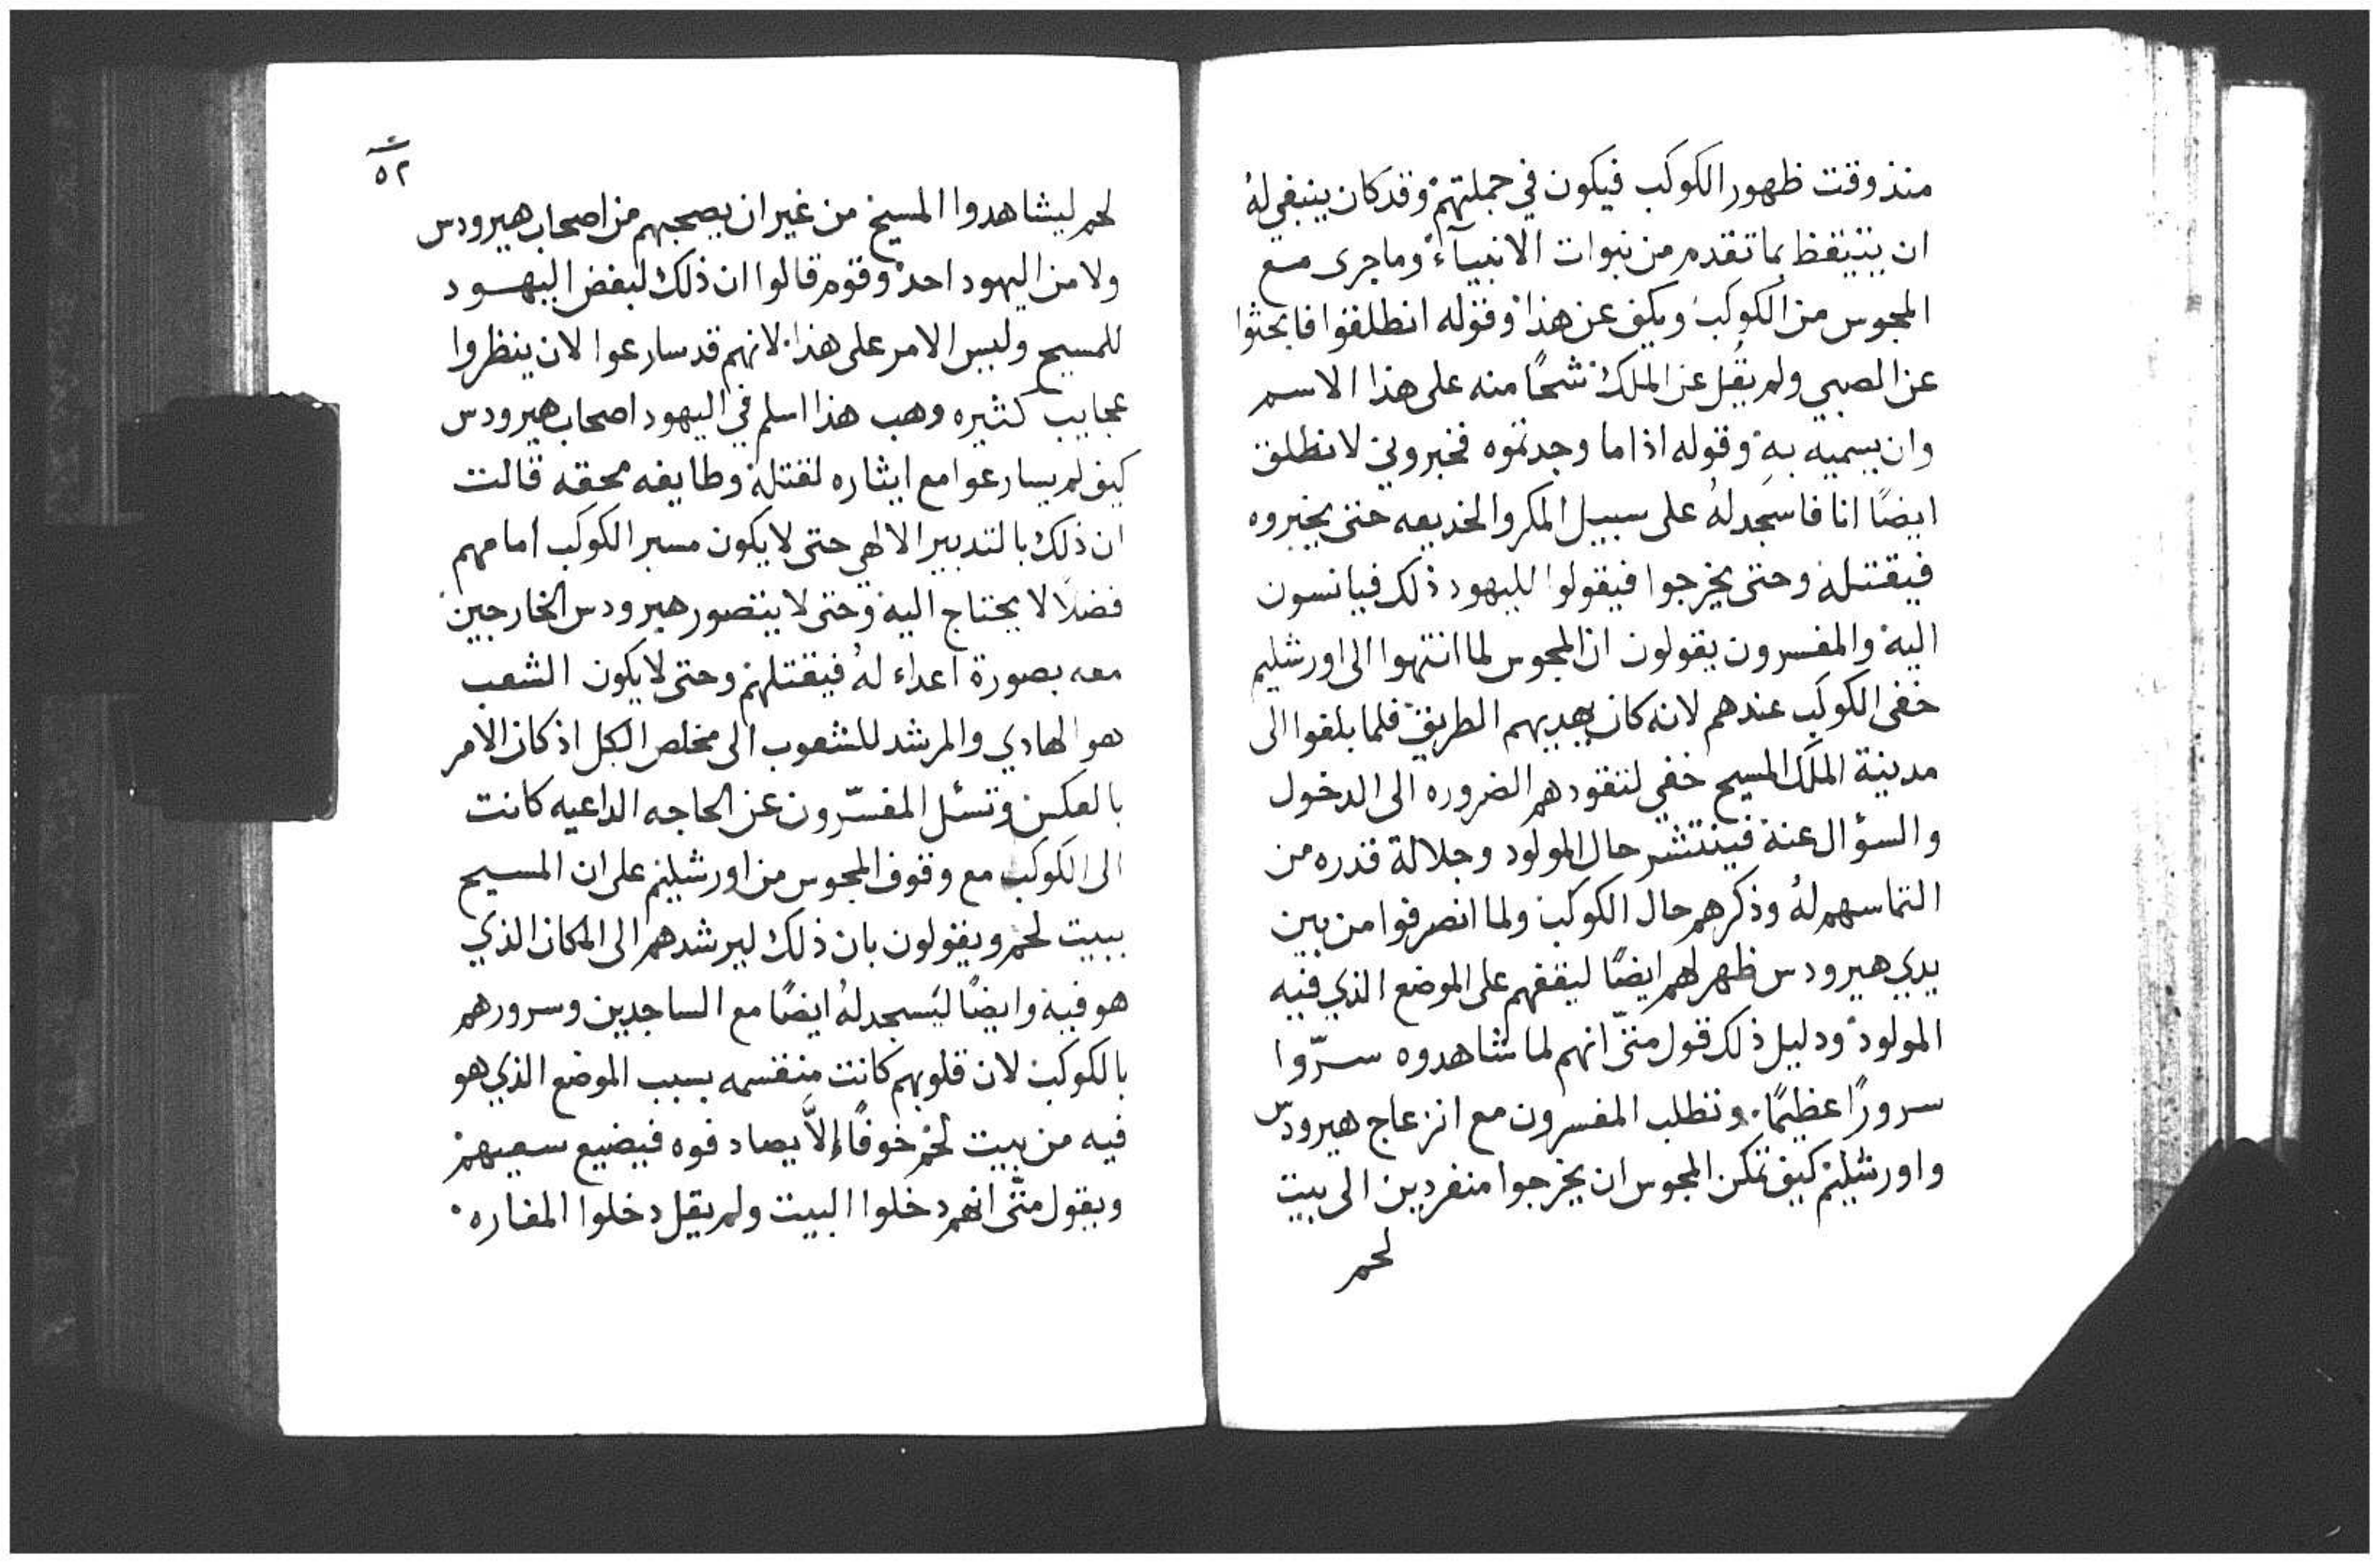 منذ وقت ظهور الكوكب فيكون في جملتهم وقد كان ينبغي له
ان يتيقظ بما تقدم من نبوات الانبيآء وما جرى مع
المجوس من الكوكب ويكف عن هذا وقوله انطلقوا فابحثوا
عن الصبي ولم يقُل عن الملك شحًا منه على هذا الاسم
وان يسميه به وقوله اذا ما وجدتموه فخبروني لانطلق
ايضًا انا فاسجد لهُ على سبيل المكر والخديعه حتى يخبروه
فيقتله وحتى يخرجوا فيقولوا لليهود ذلك فيانسون
اليه والمفسرون يقولون ان المجوس لما انتهوا الى اورشليم
خفى الكوكب عندهم لانه كان يهديهم الطريق فلما بلغوا الى
مدينة الملك المسيح خفي لتقودهم الضروره الى الدخول
والسؤال عنه فينتشر حال المولود وجلالة قدره من
التماسهم لهُ وذكرهم حال الكوكب ولما انصرفوا من بين
يدي هيرودس ظهر لهم ايضًا ليقفهم على الموضع الذي فيه
المولود ودليل ذلك قول متّى انهم لما شاهدوه سرّوا
سرورًا عظيمًا. ونطلب المفسرون مع انزعاج هيرودس
واورشليم كيف تمكن المجوس ان يخرجوا منفردين الى بيت
لحم
٥٢
لحم ليشاهدوا المسيح من غير ان يصحبهم من اصحاب هيرودس
ولا من اليهود احد وقوم قالوا ان ذلك لبغض اليهود
للمسيح وليس الامر على هذا لانهم قد سارعوا لان ينظروا
عجايب كثيره وهب هذا اسلم في اليهود اصحاب هيرودس
كيف لم يسارعوا مع ايثاره لقتله وطايفه محقه قالت
ان ذلك بالتدبير الالهي حتى لا يكون مسير الكوكب امامهم
فضلًا لا يحتاج اليه وحتى لا يتصور هيرودس الخارجين
معه بصورة اعداء لهُ فيقتلهم وحتى لا يكون الشعب
هو الهادي والمرشد للشعوب الى مخلص الكل اذ كان الامر
بالعكس وتسئل المفسّرون عن الحاجه الداعيه كانت
الى الكوكب مع وقوف المجوس من اورشليم على ان المسيح
ببيت لحم ويقولون بان ذلك ليرشدهم الى المكان الذي
هو فيه وايضًا ليَسجد لهُ ايضًا مع الساجدين وسرورهم
بالكوكب لان قلوبهم كانت منقسمه بسبب الموضع الذي هو
فيه من بيت لحم خوفًا إلاَّ يصادفوه فيضيع سعيهم
ويقول متّى انهم دخلوا البيت ولم يقل دخلوا المغاره